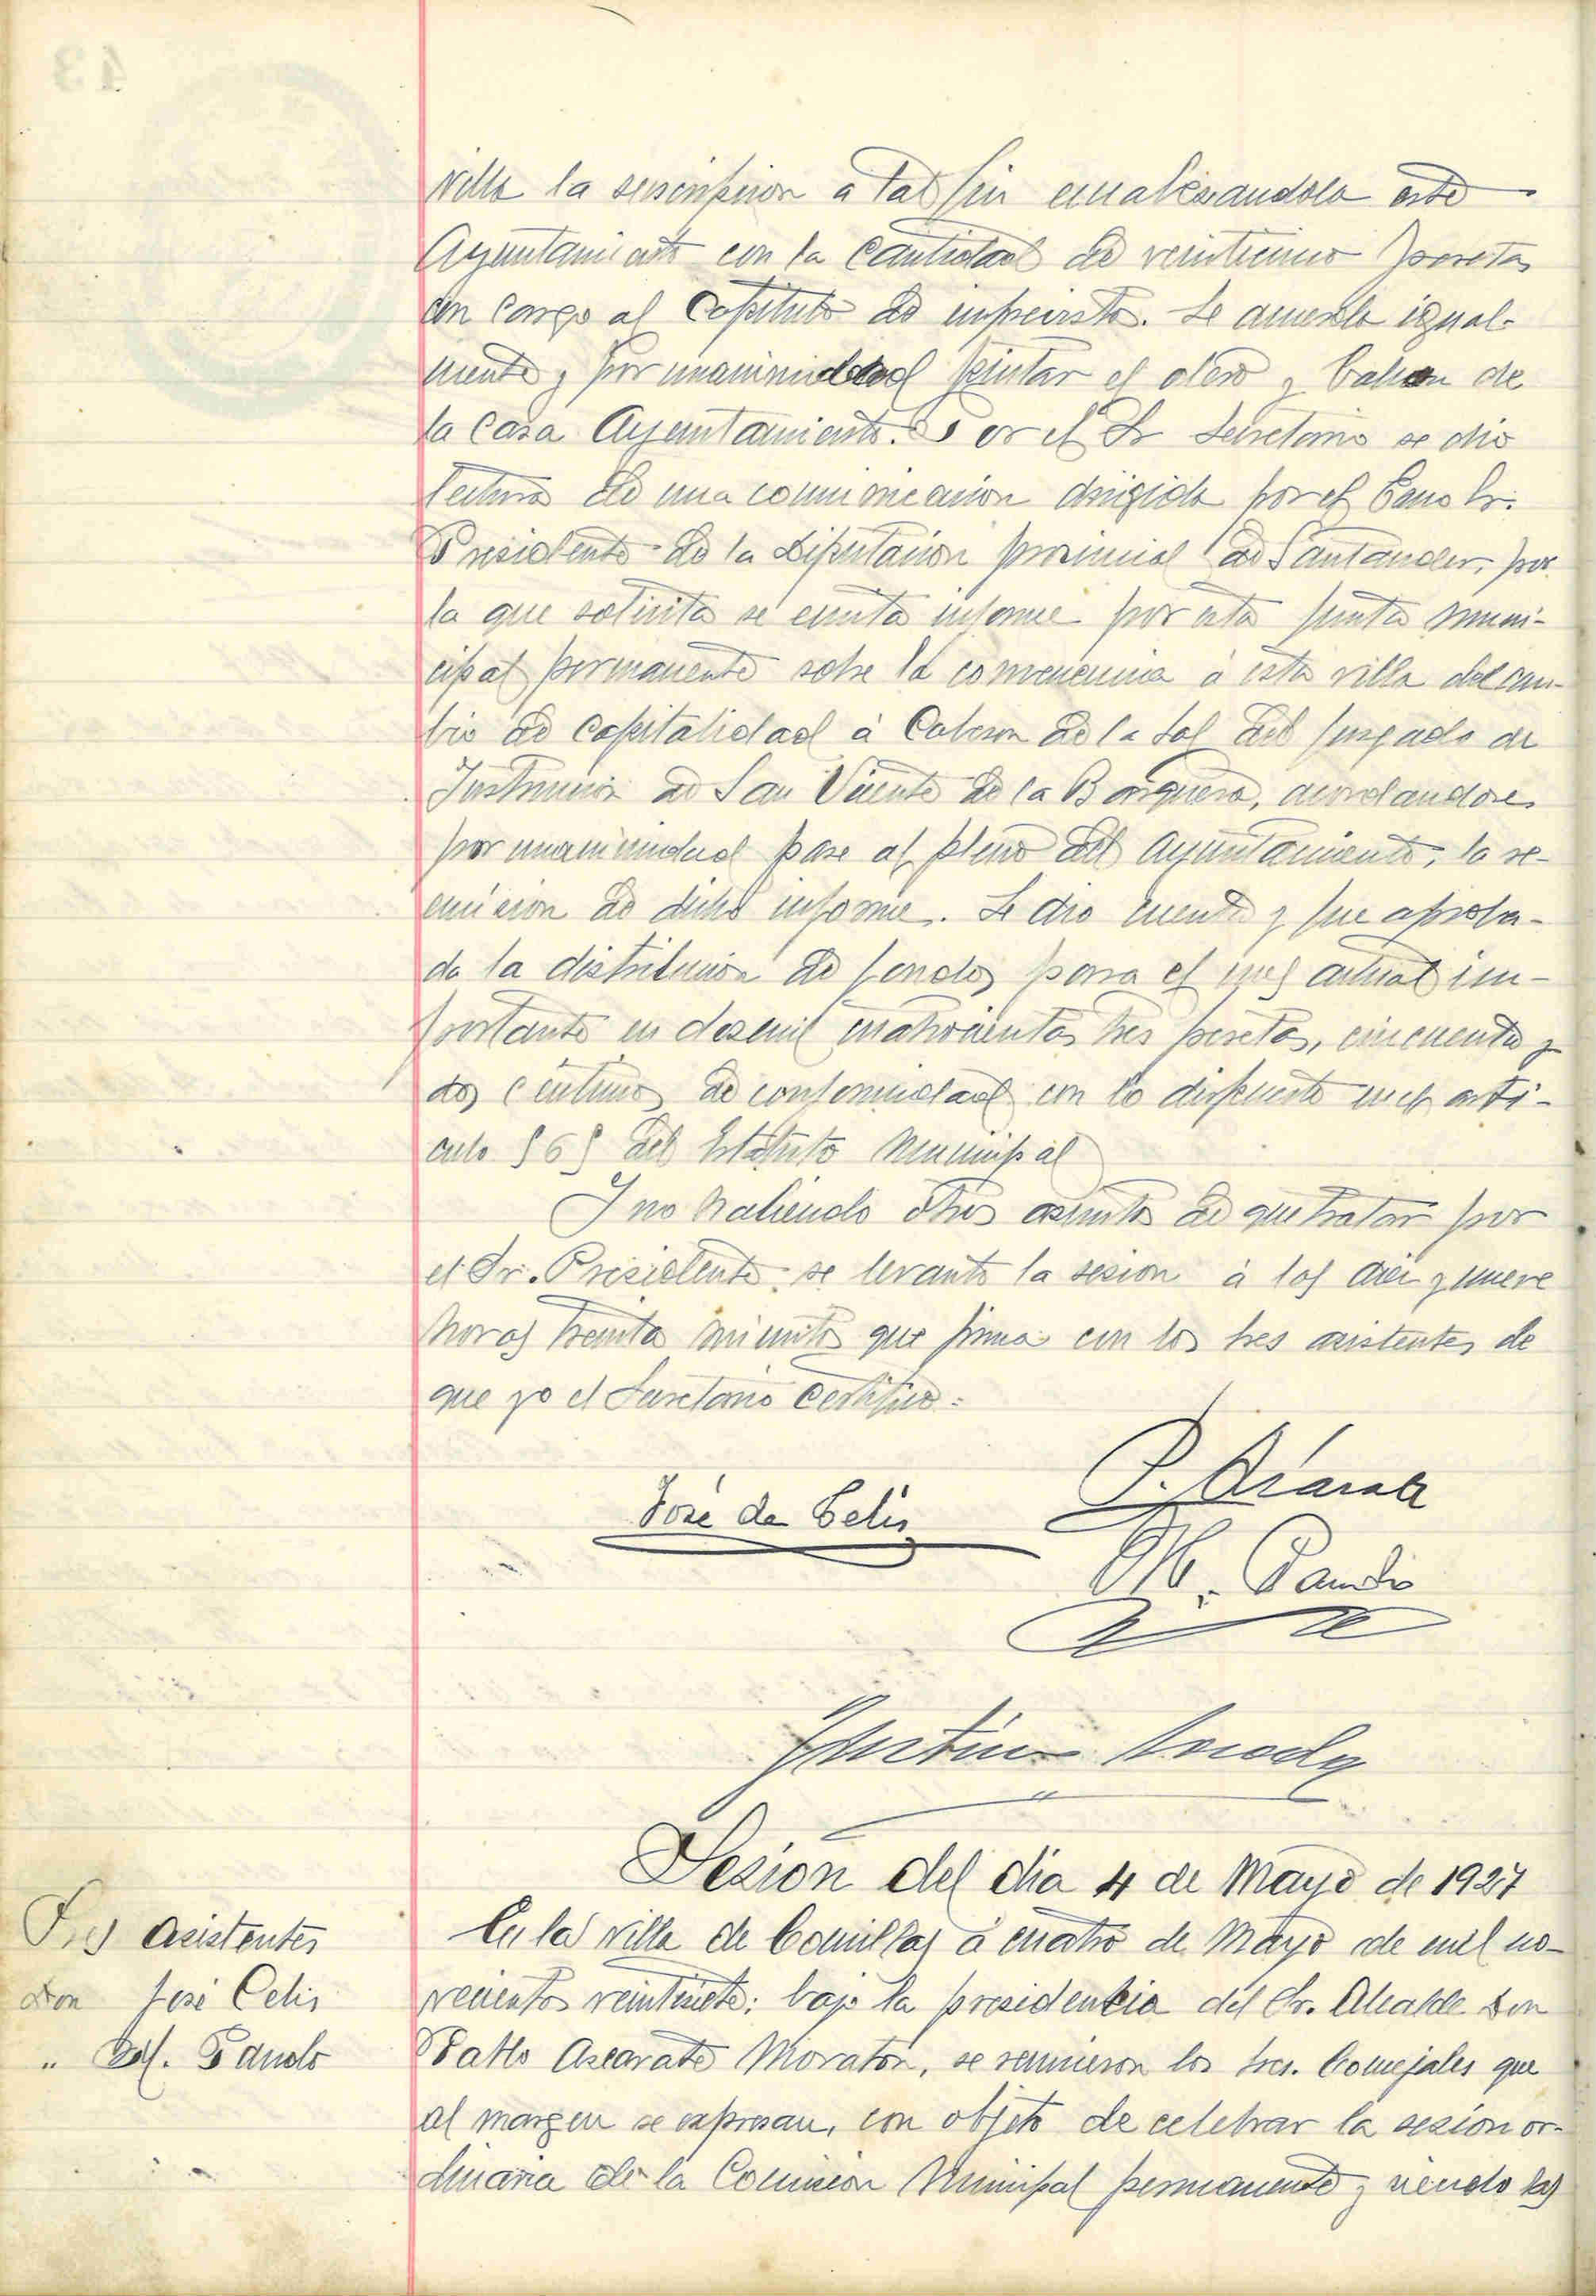 villa la suscripcion a tal fin encabezandola este
Ayuntamiento con la cantidad de veinticinco pesetas
con cargo al Capitulo de imprevistos. Se acuerda igual-
mente y por unanimidad pintar el alero y balcon de
la Casa Ayuntamiento. Por el Sr Secretario se dio
lectura de una comunicacion dirigida por el Excmo Sr.
Presidente de la Diputacion provincial de Santander, por
la que solicita se emita informe por esta junta muni-
cipal permanente sobre la conveniencia á esta villa del cam-
bio de capitalidad á Cabezon de la Sal del Juzgado de
Instruccion de San Vicente de la Barquera, acordandose
por unanimidad pase al pleno del Ayuntamiento, la re-
mision de dicho informe. Se dio cuenta y fue aproba-
da la distribucion de fondos para el mes actual im-
portante en docemil cuatrocientas tres pesetas, cincuenta y
dos centimos de conformidad con lo dispuesto en el arti-
culo del Estatuto Municipal
Y no habiendo otros asuntos de que tratar por
el Sr. Presidente se levanto la sesion á las diez y nueve
horas treinta minutos que firma con los Sres asistentes de
que yo el Secretario Certifico:
P. Azcarate
José de Celis
M. Pando
Sesion del dia 4 de Mayo de 1927
Sres Asistentes
Don José Celis
" M. Pando
En la villa de Comillas á cuatro de Mayo de mil no-
vecientos veintisiete: bajo la presidencia del Sr. Alcalde Don
Pablo Azcarate Moraton, se reunieron los Sres. Concejales que
al margen se expresan, con objeto de celebrar la sesion or-
dinaria de la Comision Municipal permanente y siendo las